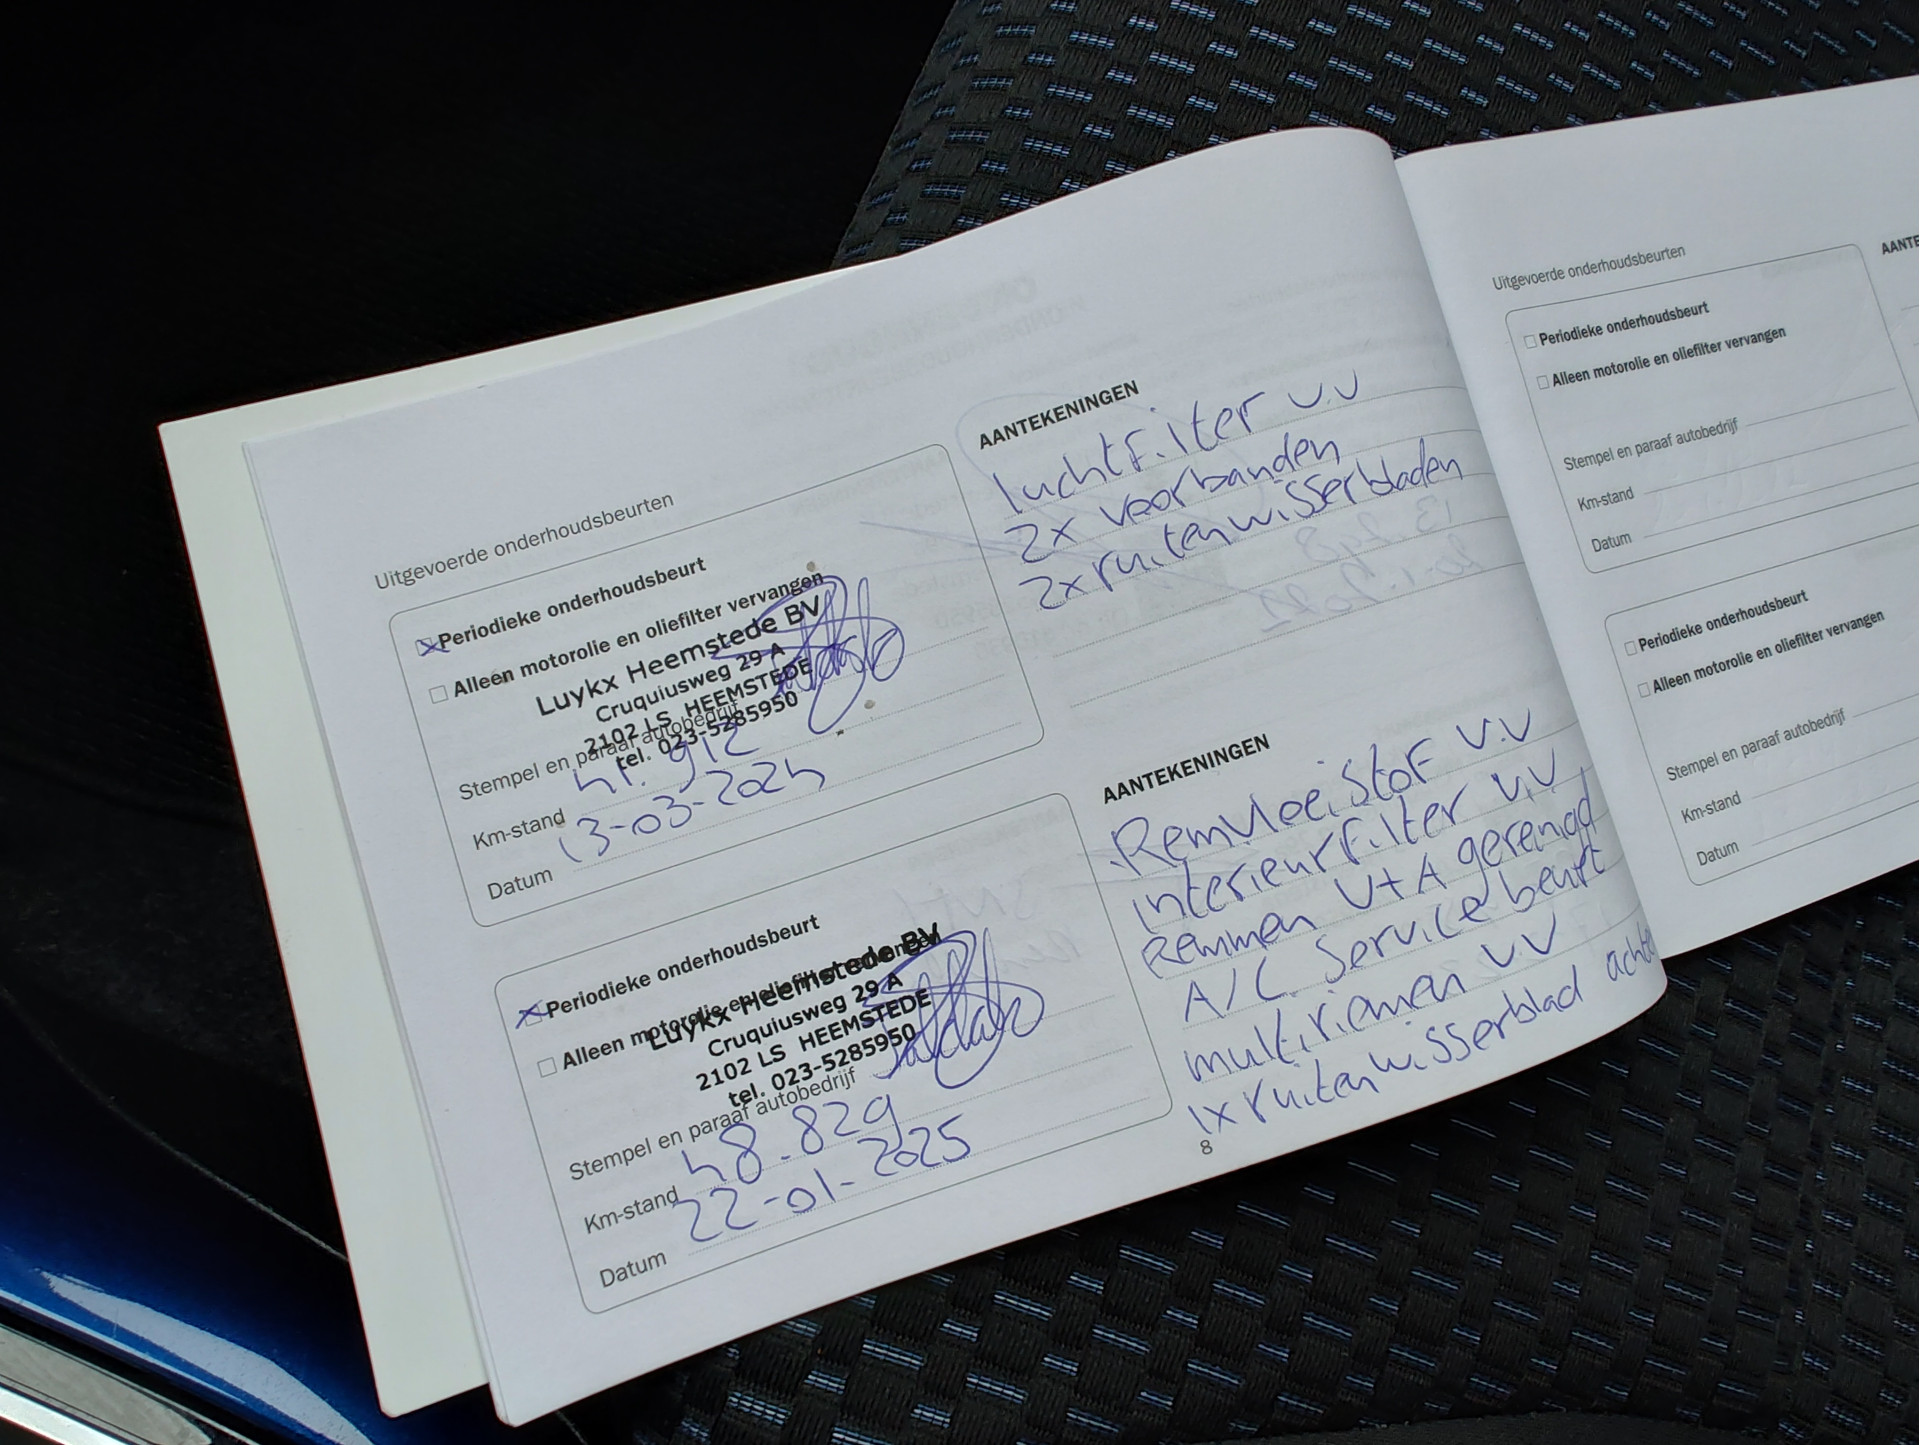 Uitgevoerde onderhoudsbeurten
Periodieke onderhoudsbeurt
Alleen motorolie en oliefilter vervangen
Luykx Heemstede BV
Cruquiusweg 29 A
2102 LS HEEMSTEDE
tel. 023-5285950
Stempel en paraaf autobedrijf
Km-stand 41.912
Datum 13-03-2024
AANTEKENINGEN
luchtfilter v.v
2x voorbanden
2x ruitenwisserbladen
Periodieke onderhoudsbeurt
Alleen motorolie en oliefilter vervangen
Luykx Heemstede BV
Cruquiusweg 29 A
2102 LS HEEMSTEDE
tel. 023-5285950
Stempel en paraaf autobedrijf
Km-stand 48.829
Datum 22-01-2025
AANTEKENINGEN
Remvloeistof v.v
interieurfilter v.v
Remmen V+A gereinigd
A/C Servicebeurt
multiriemen v.v
1x ruitenwisserblad
8
Uitgevoerde onderhoudsbeurten
Periodieke onderhoudsbeurt
Alleen motorolie en oliefilter vervangen
Stempel en paraaf autobedrijf
Km-stand
Datum
Periodieke onderhoudsbeurt
Alleen motorolie en oliefilter vervangen
Stempel en paraaf autobedrijf
Km-stand
Datum